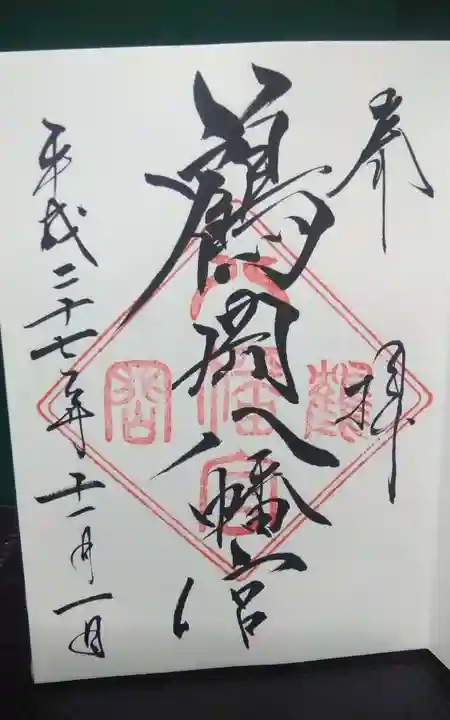 奉拝
鶴岡八幡宮
平成二十七年十一月一日
鶴
八
幡
宮
岡